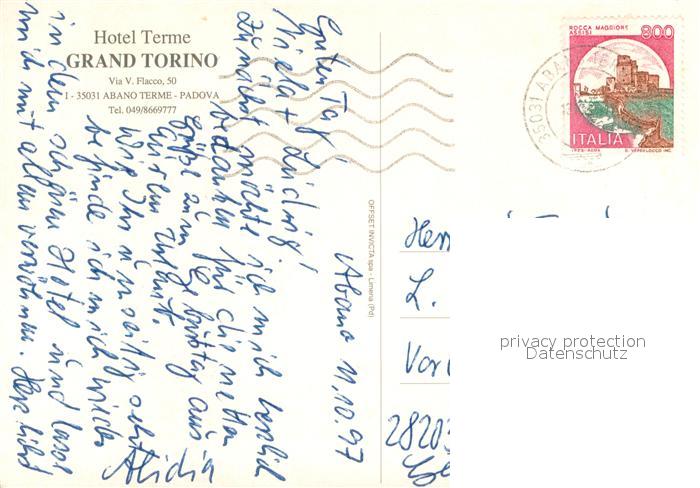 Hotel Terme
GRAND TORINO
Via V. Flacco, 50
I - 35031 ABANO TERME - PADOVA
Tel. 049/8669777
Abano 11.10.97
Guten Tag
Ludwig!
Zunächst möchte ich mich herzlich
bedanken für die netten
Grüße zum Geburtstag aus
Wie Ihr seht
befinde ich mich wieder
in dem schönen Hotel und lasse
mich mit allem verwöhnen. Herzlichst
Alidia
OFFSET INVICTA spa - Limena (Pd)
ROCCA MAGGIORE
ASSISI
800
ITALIA
35031 ABANO
Herr
L.
privacy protection
Datenschutz